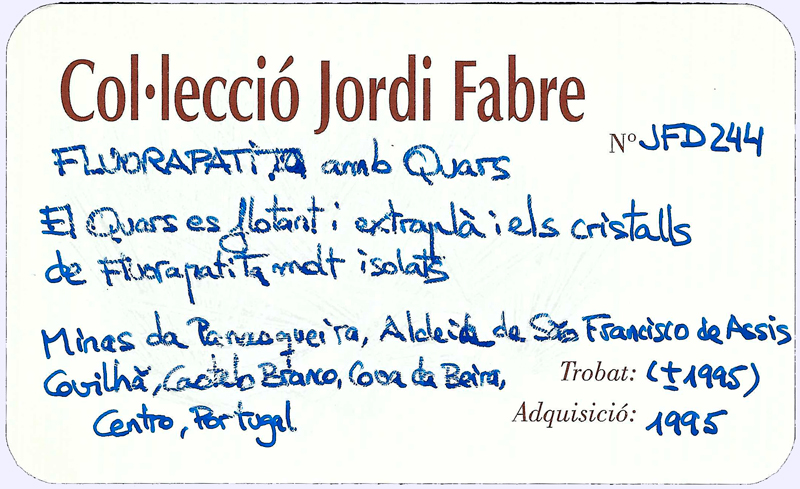 Col·lecció Jordi Fabre
Nº JFD244
FLUORAPATITA amb Quars
El Quars es flotant i extraplà i els cristalls
de Fluorapatita molt isolats
Minas da Panasqueira, Aldeia de São Francisco de Assis
Covilhã, Castelo Branco, Cova da Beira,
Centro, Portugal
Trobat: (±1995)
Adquisició: 1995